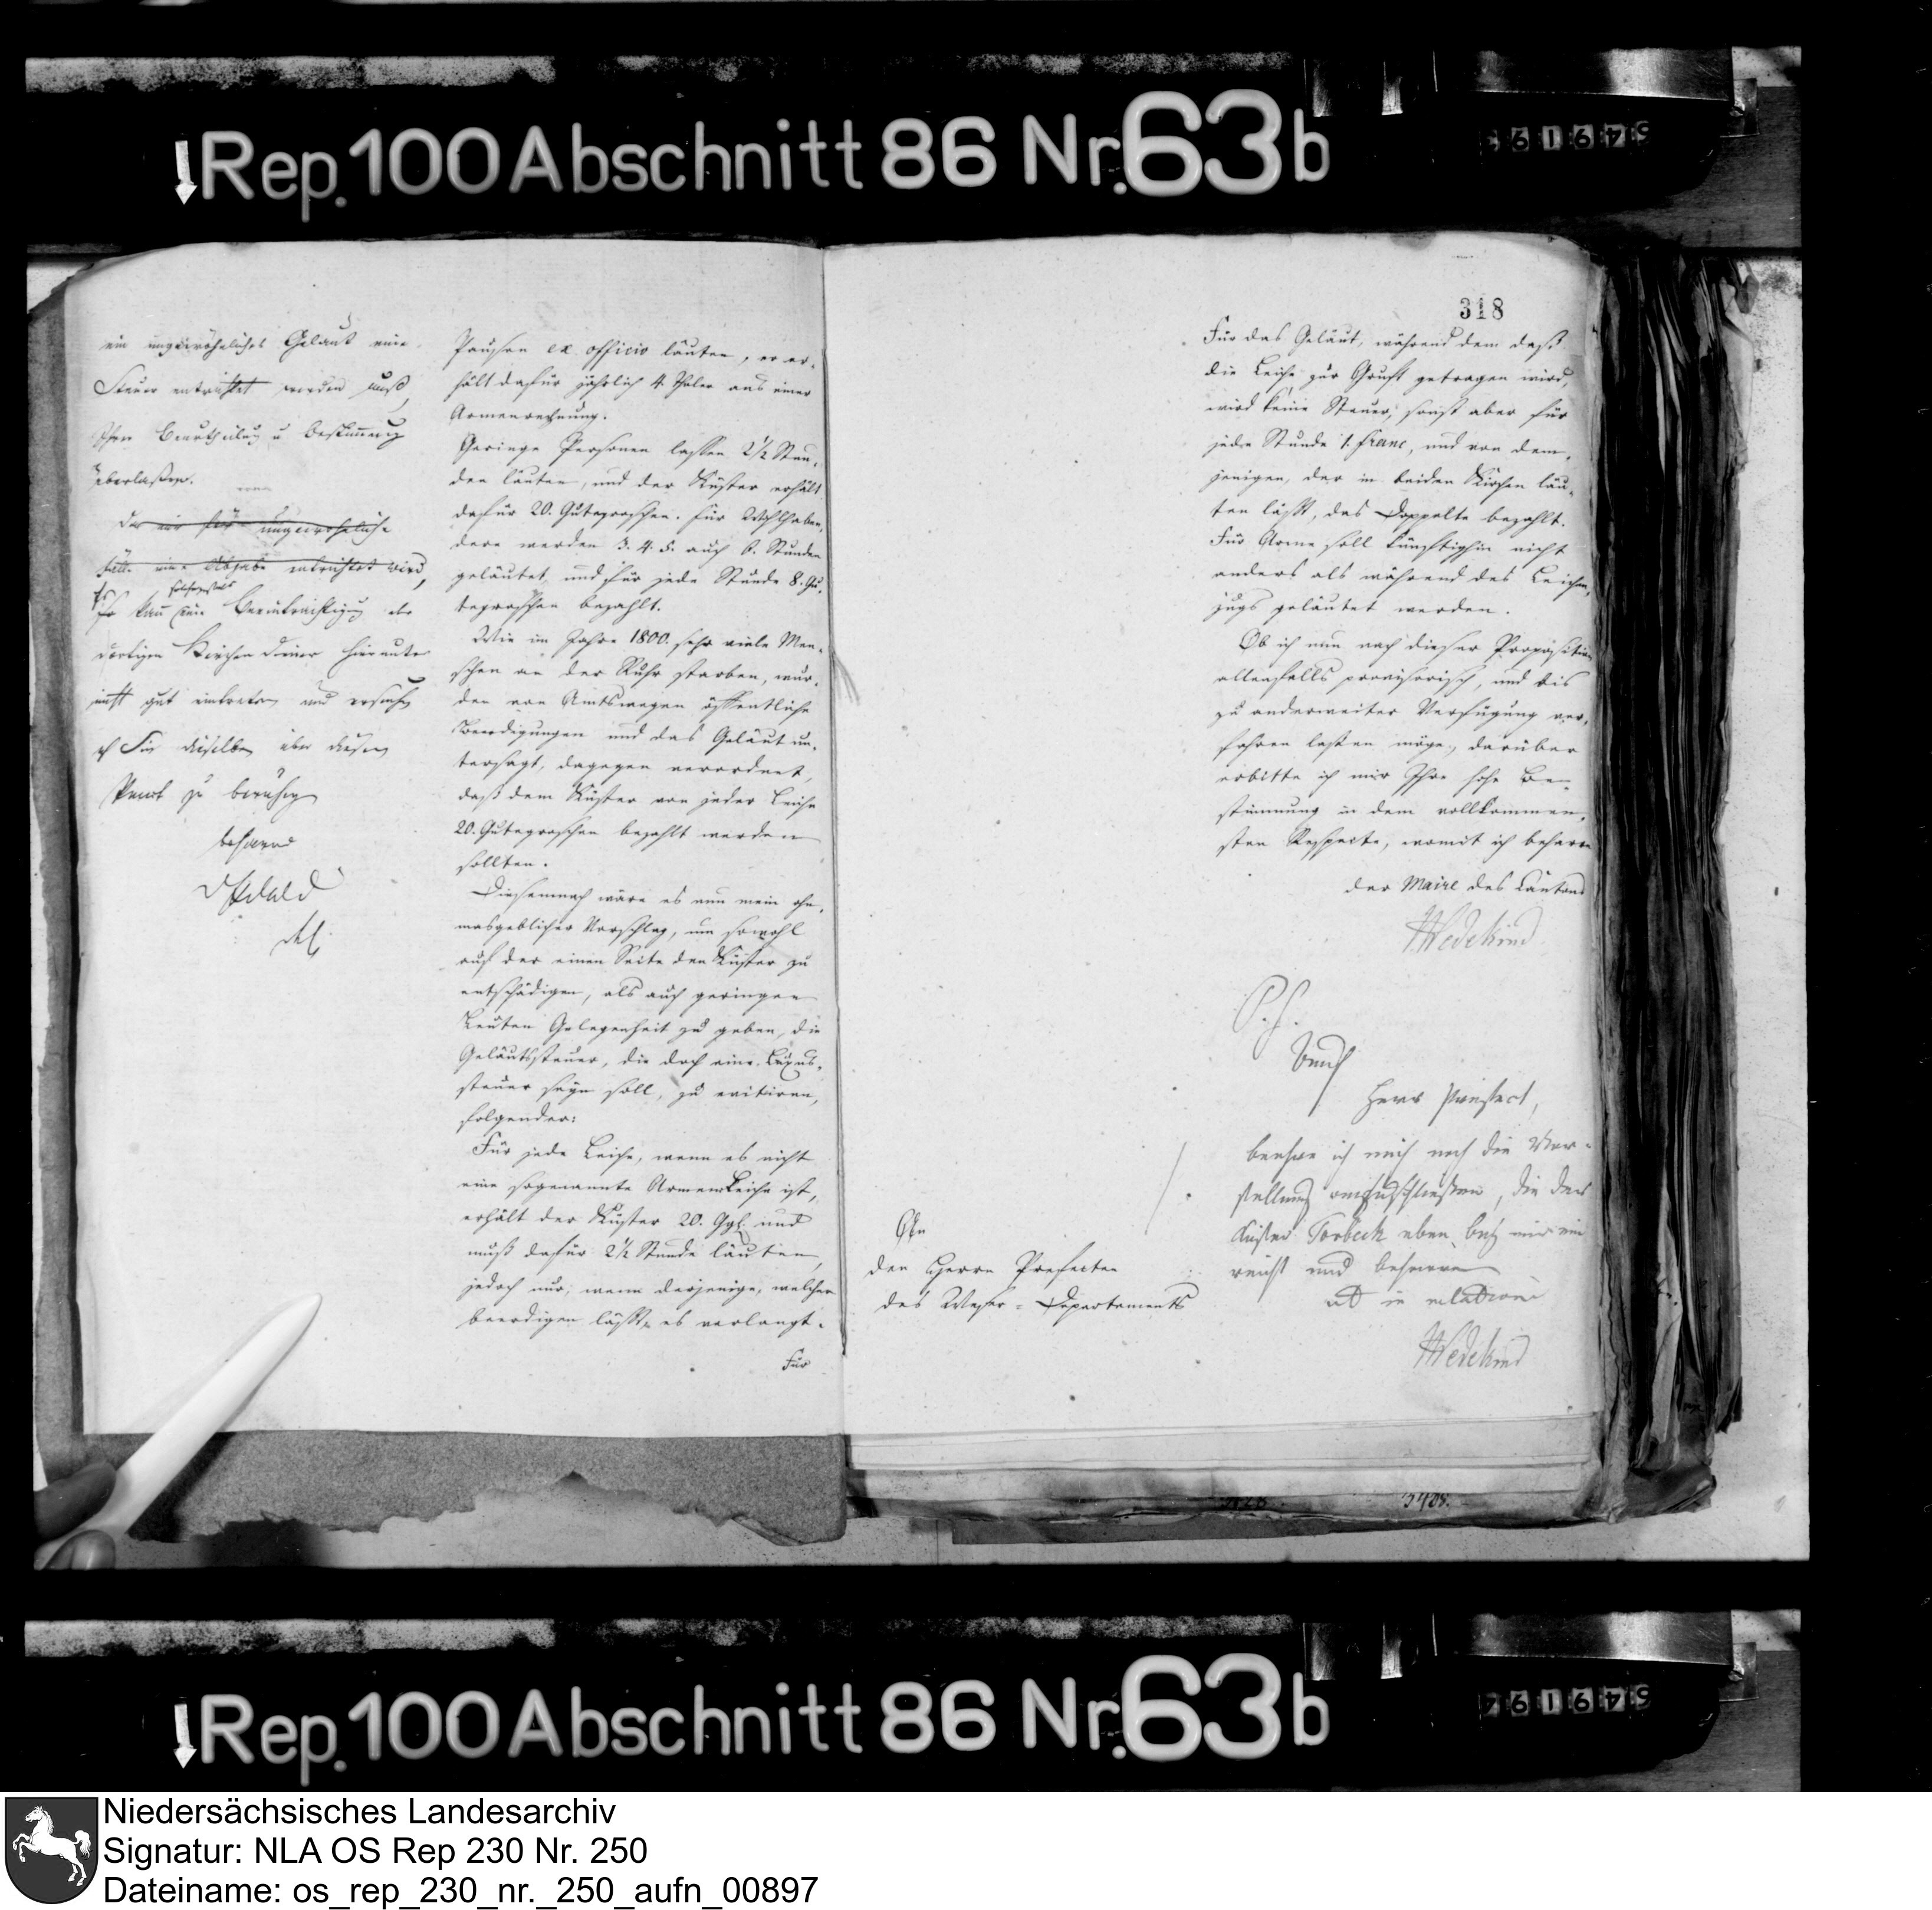 ↓Rep.100 Abschnitt 86 Nr. 63b
549194
ein ungewöhnliches Geläut eine
Steuer entrichtet werden muß,
Ihrer Beurtheilung u Bestimmung
überlaßen.
der nur für ungewöhnliche
Fälle eine Abgabe entrichtet wird,
Es
solchergestalt
so kann eine Beeinträchtigung der
dortigen Kirchen Diener hierunter
nicht gut eintreten und ersuche
ich Sie dieselben über diesen
Punct zu beruhigen
Pausen ex officio läuten, er er-
hält dafür jährlich 4 Thaler aus einer
Armenrechnung.
Geringe Personen lassen 2½ Stun-
den läuten, und der Küster erhält
dafür 20. Gutegroschen. Für Wohlhaben-
dere werden 3. 4. 5. auch 6. Stunden
geläutet, und für jede Stunde 8. Gu-
tegroschen bezahlt.
Wie im Jahre 1800. sehr viele Men-
schen an der Ruhr starben, wur-
den von Amtswegen öffentliche
Beerdigungen und das Geläut un-
tersagt, dagegen verordnet,
daß dem Küster von jeder Leiche
20. Gutegroschen bezahlt werden
sollten.
Diesemnach wäre es nun mein ohn-
masgeblicher Vorschlag, um sowohl
auf der einen Seite den Küster zu
entschädigen, als auch geringen
Leuten Gelegenheit zu geben, die
Geläutssteuer, die doch eine Luxus-
steuer seyn soll, zu evitiren,
folgender:
Für jede Leiche, wenn es nicht
eine sogenannte Armenleiche ist,
erhält der Küster 20. Ggl. und
muß dafür 2½ Stunde läuten,
jedoch nur, wenn derjenige, welcher
beerdigen lässt, es verlangt.
Für
318
Für das Geläut, während dem daß
die Leiche zur Gruft getragen wird,
wird keine Steuer, sonst aber für
jede Stunde 1. franc, und von dem-
jenigen, der in beiden Kirchen läu-
ten lässt, das Doppelte bezahlt.
Für Arme soll künftighin nicht
anders als während des Leichen-
zugs geläutet werden.
Ob ich nun nach dieser Proposition
allenfalls provisorisch, und bis
zu anderweiter Verfügung ver-
fahren lassen möge, darüber
erbitte ich mir Ihre hohe Be-
stimmung in dem vollkommen-
sten Respecte, womit ich beharre
der Maire des Cantons
Wedekind
P.S.
Auch
Herr Praefect,
beehre ich mich noch die Vor-
stellung anzuschliessen, die der
Küster Torbeck eben bey mir ein
reicht und beharre
ut in relatione
Wedekind
An
den Herrn Prefecten
des Weser-Departements
↓Rep.100 Abschnitt 86 Nr. 63b
549194
Niedersächsisches Landesarchiv
Signatur: NLA OS Rep 230 Nr. 250
Dateiname: os_rep_230_nr._250_aufn_00897